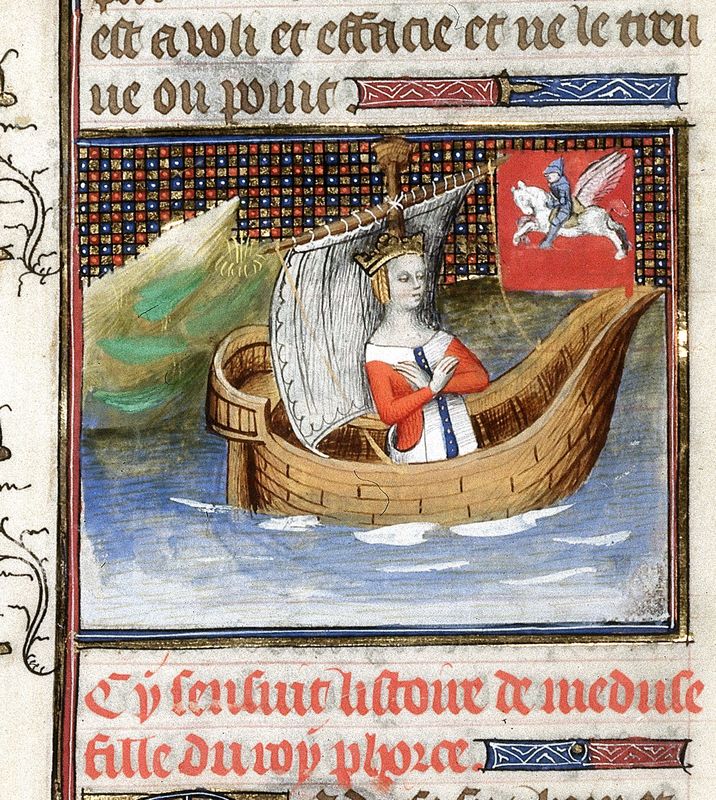 est avoli et effacie et ne le treu
ue on point
Cy sensuit listoire de meduse
fille du roy phorce.